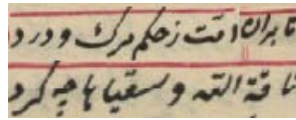 تا بران امت ز حکم مرگ و درد
ناقة الله و سقیاها چه کرد